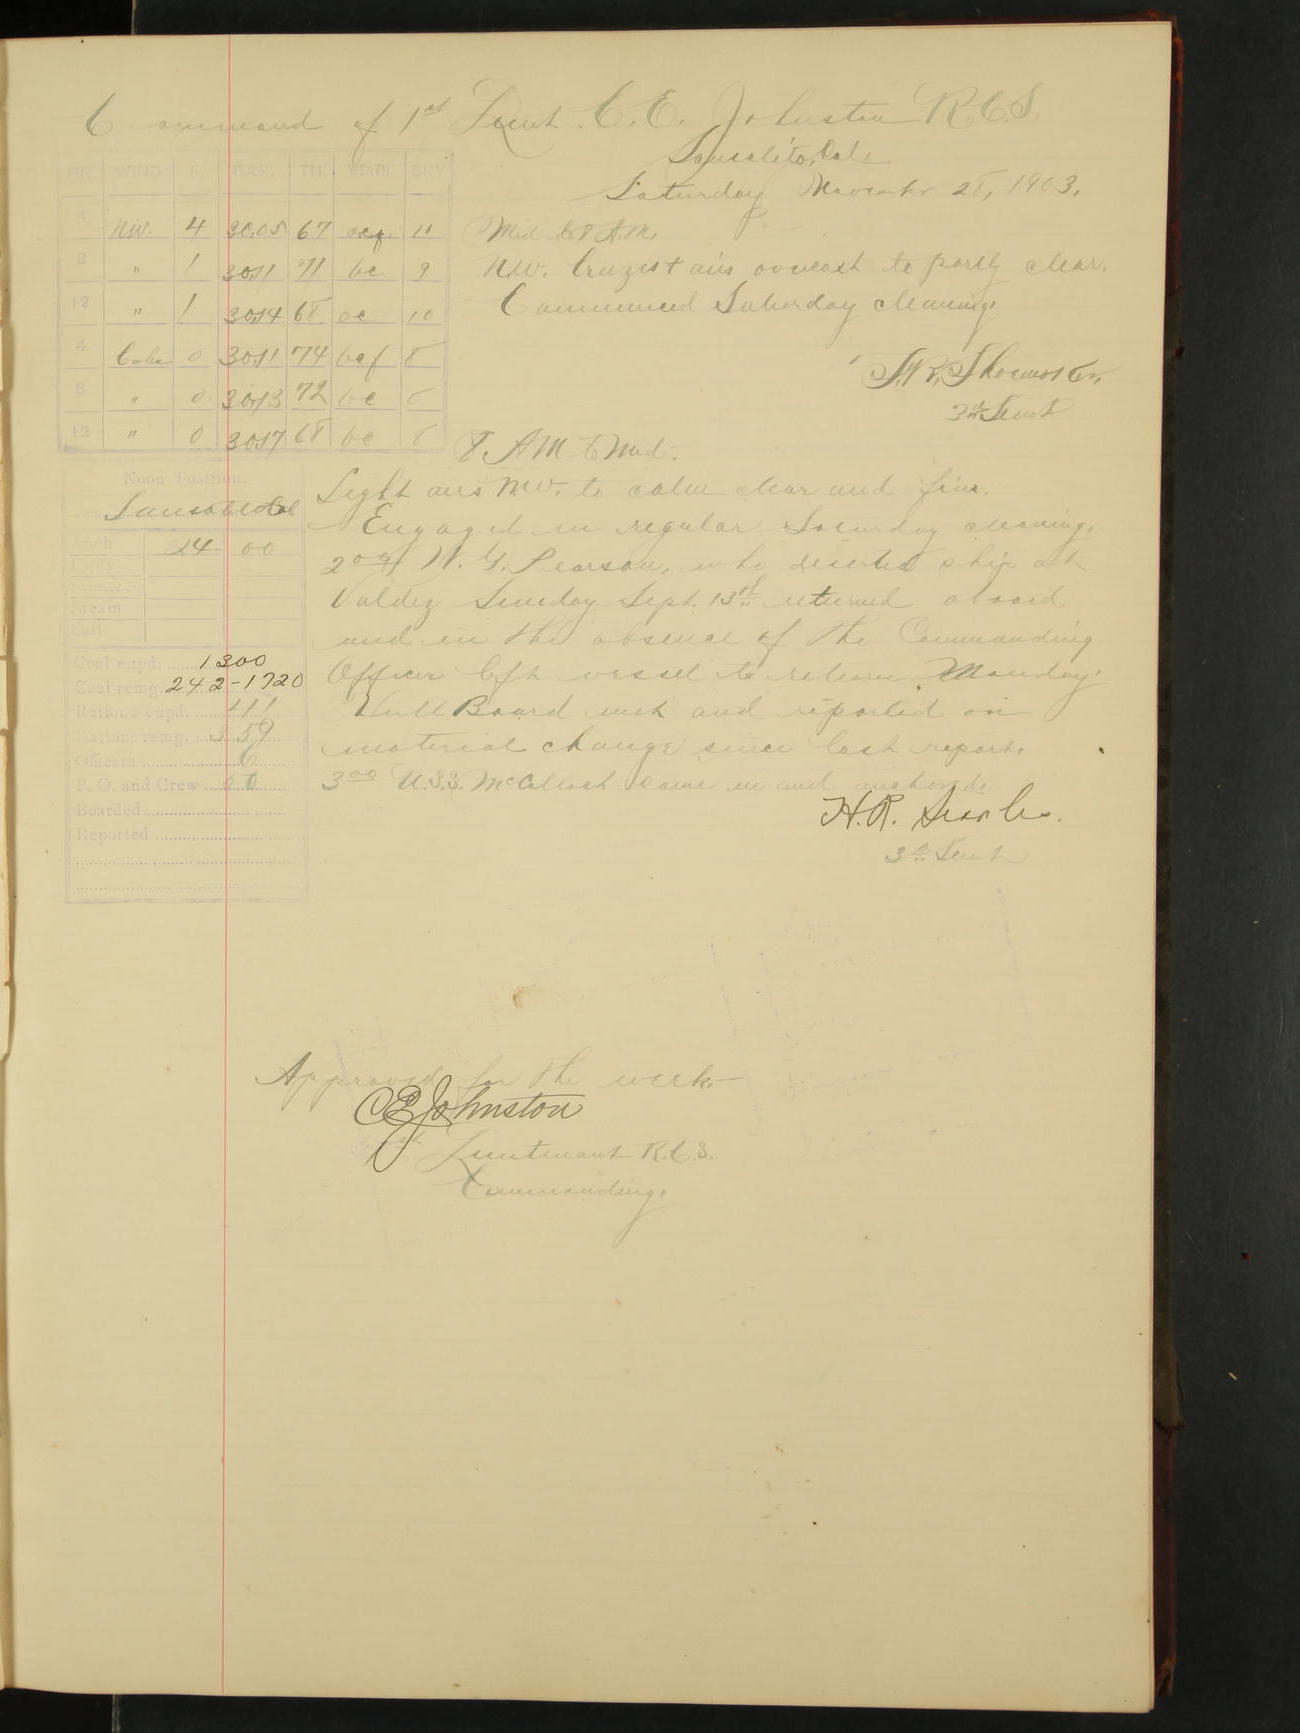 Command of 1st Lieut. C. E. Johnston R.C.S.
Sausalito, Cal.
Saturday November 28, 1903.
HR. WIND F. BAR. TH. WEATH. SKY
4 NW. 4 30.05 67 ocq 10
8 " 1 30.11 71 bc 9
12 " 1 30.14 68 oc 10
4 Calm 0 30.11 74 bcf 8
8 " 0 30.13 72 bc 6
12 " 0 30.17 68 bc 6
Mid to 8 A.M.
N.W. breezes & airs overcast to partly clear.
Commenced Saturday cleaning.
3rd Lieut
8. AM to Mid.
Light airs NW. to calm clear and fine.
Engaged in regular Saturday cleaning.
2 00 W. G. Pearson, who deserted ship at
Valdez Sunday Sept. 13th returned aboard
and in the absence of the Commanding
Officer left vessel to return Monday.
Hull Board met and reported no
material change since last report.
3 00 U.S.S. McCulloch came in and anchored.
H. R. Searles.
3d Lieut
Noon Position.
Sausalito Cal
Anch 24 00
Steam
Sail
Coal expd. 1300
Coal remg. 242-1720
Rations expd. 41
Rations remg. 359
Officers 6
P. O. and Crew 60
Boarded
Reported
Approved for the week—
C E Johnston
1st Lieutenant R.C.S.
Commanding.